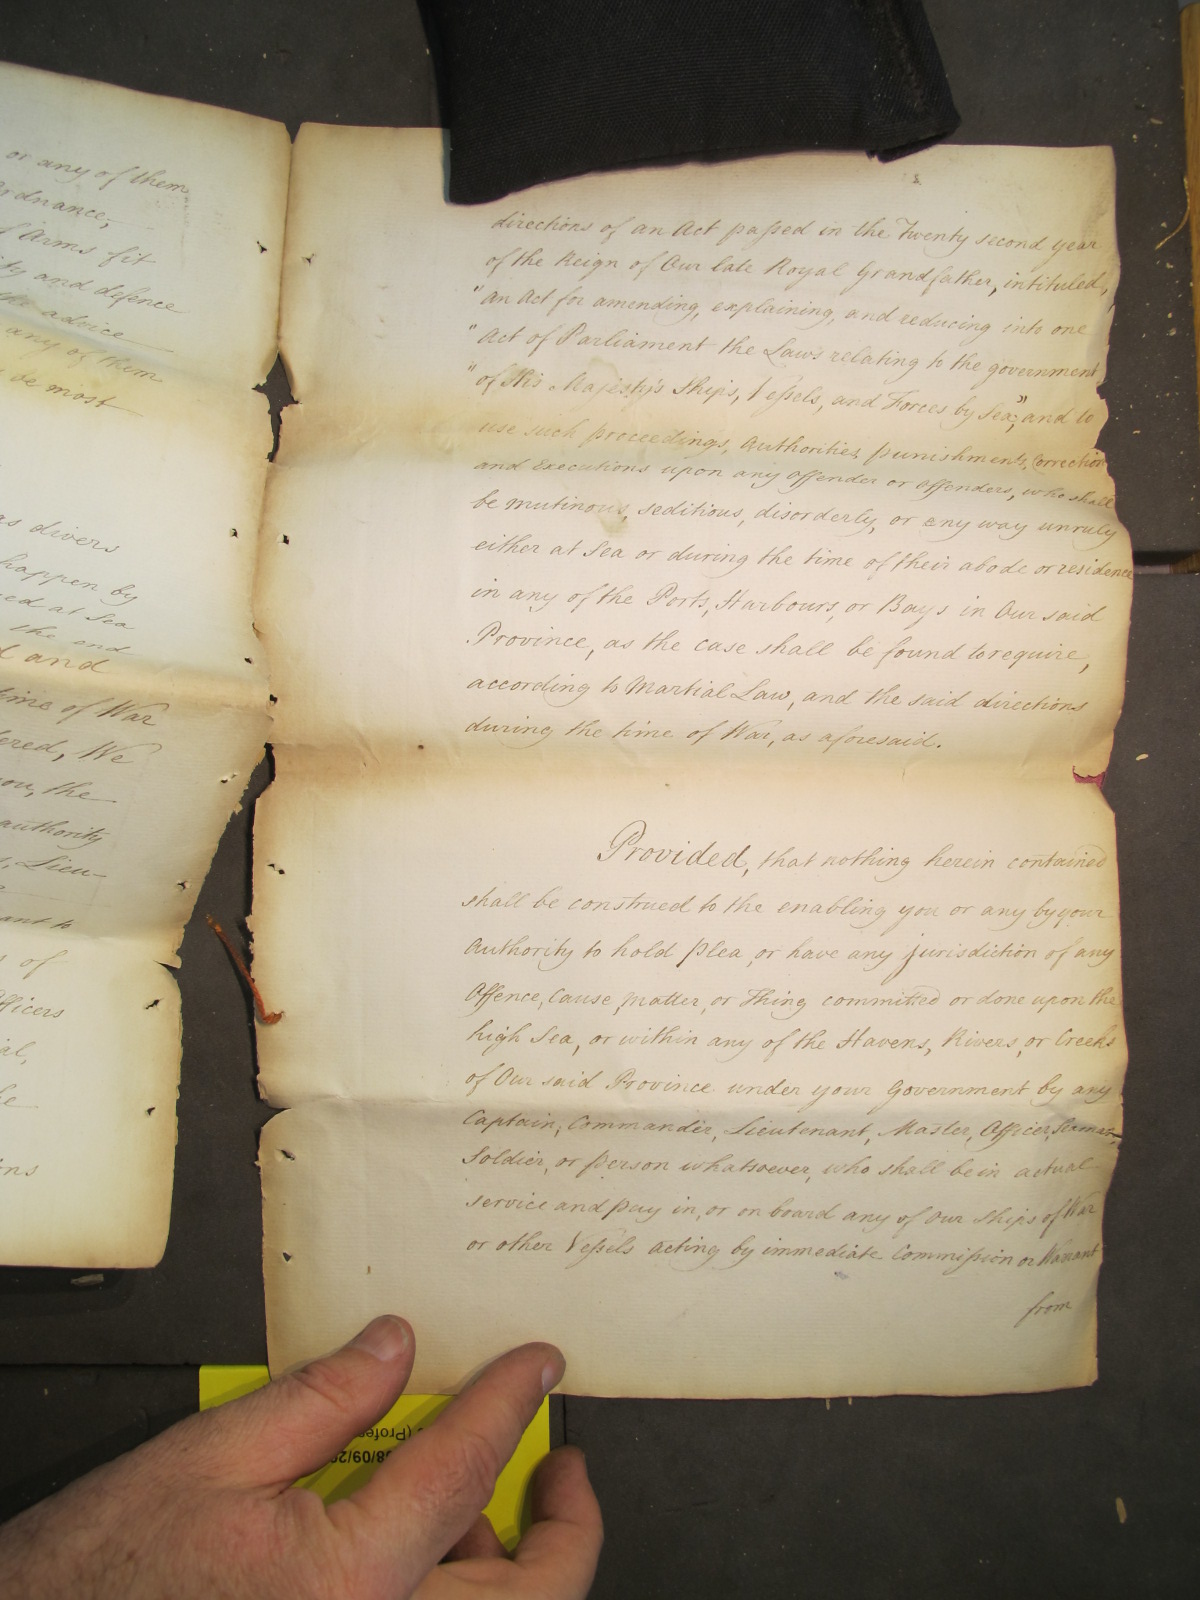 or any of them
Ordnance,
Arms fit
and defence
the advice
any of them
be most
as divers
happen by
at Sea
the end
and
time of War
We
you, the
authority
Lieu-
ant to
of
Officers
ial,
he
ons
directions of an Act passed in the Twenty second year
of the Reign of Our late Royal Grandfather, intituled,
"An Act for amending, explaining, and reducing into one
"Act of Parliament the Laws relating to the government
"of His Majesty's Ships, Vessels, and Forces by Sea;" and to
use such proceedings, Authorities, punishments, Correction
and Executions upon any Offender or Offenders, who shall
be mutinous, seditious, disorderly, or any way unruly
either at Sea or during the time of their abode or residence
in any of the Ports, Harbours, or Bays in Our said
Province, as the case shall be found to require,
according to Martial Law, and the said directions
during the time of War, as aforesaid.
Provided, that nothing herein contained
shall be construed to the enabling you or any by your
Authority to hold Plea or have any jurisdiction of any
Offence, Cause, Matter, or Thing committed or done upon the
high Sea, or within any of the Havens, Rivers, or Creeks
of Our said Province under your Government by any
Captain, Commander, Lieutenant, Master, Officer, Seaman,
Soldier, or person whatsoever, who shall be in actual
service and pay in, or on board any of Our Ships of War
or other Vessels acting by immediate Commission or Warrant
from
(Profe
8/09/20